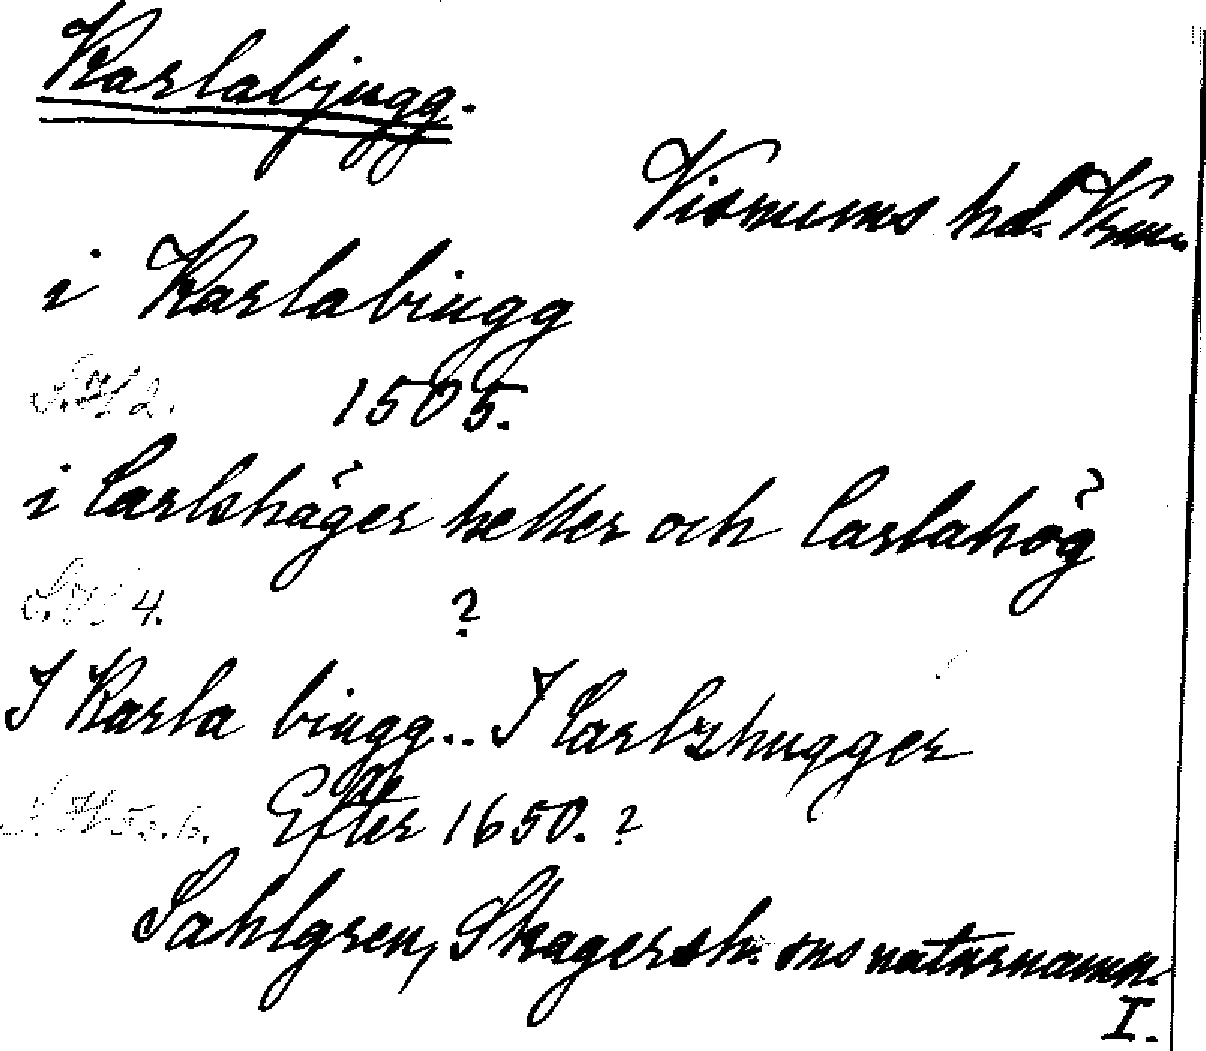 Karlabjugg.
Visnums hd. Vrm.
i Karlabiugg
1505.
i Carlshåger heller och Carlahög
4. ?
I Karla biugg.. I Carlzhugger
Efter 1650. ?
Sahlgren, Skagersh. sns naturnamn.
I.